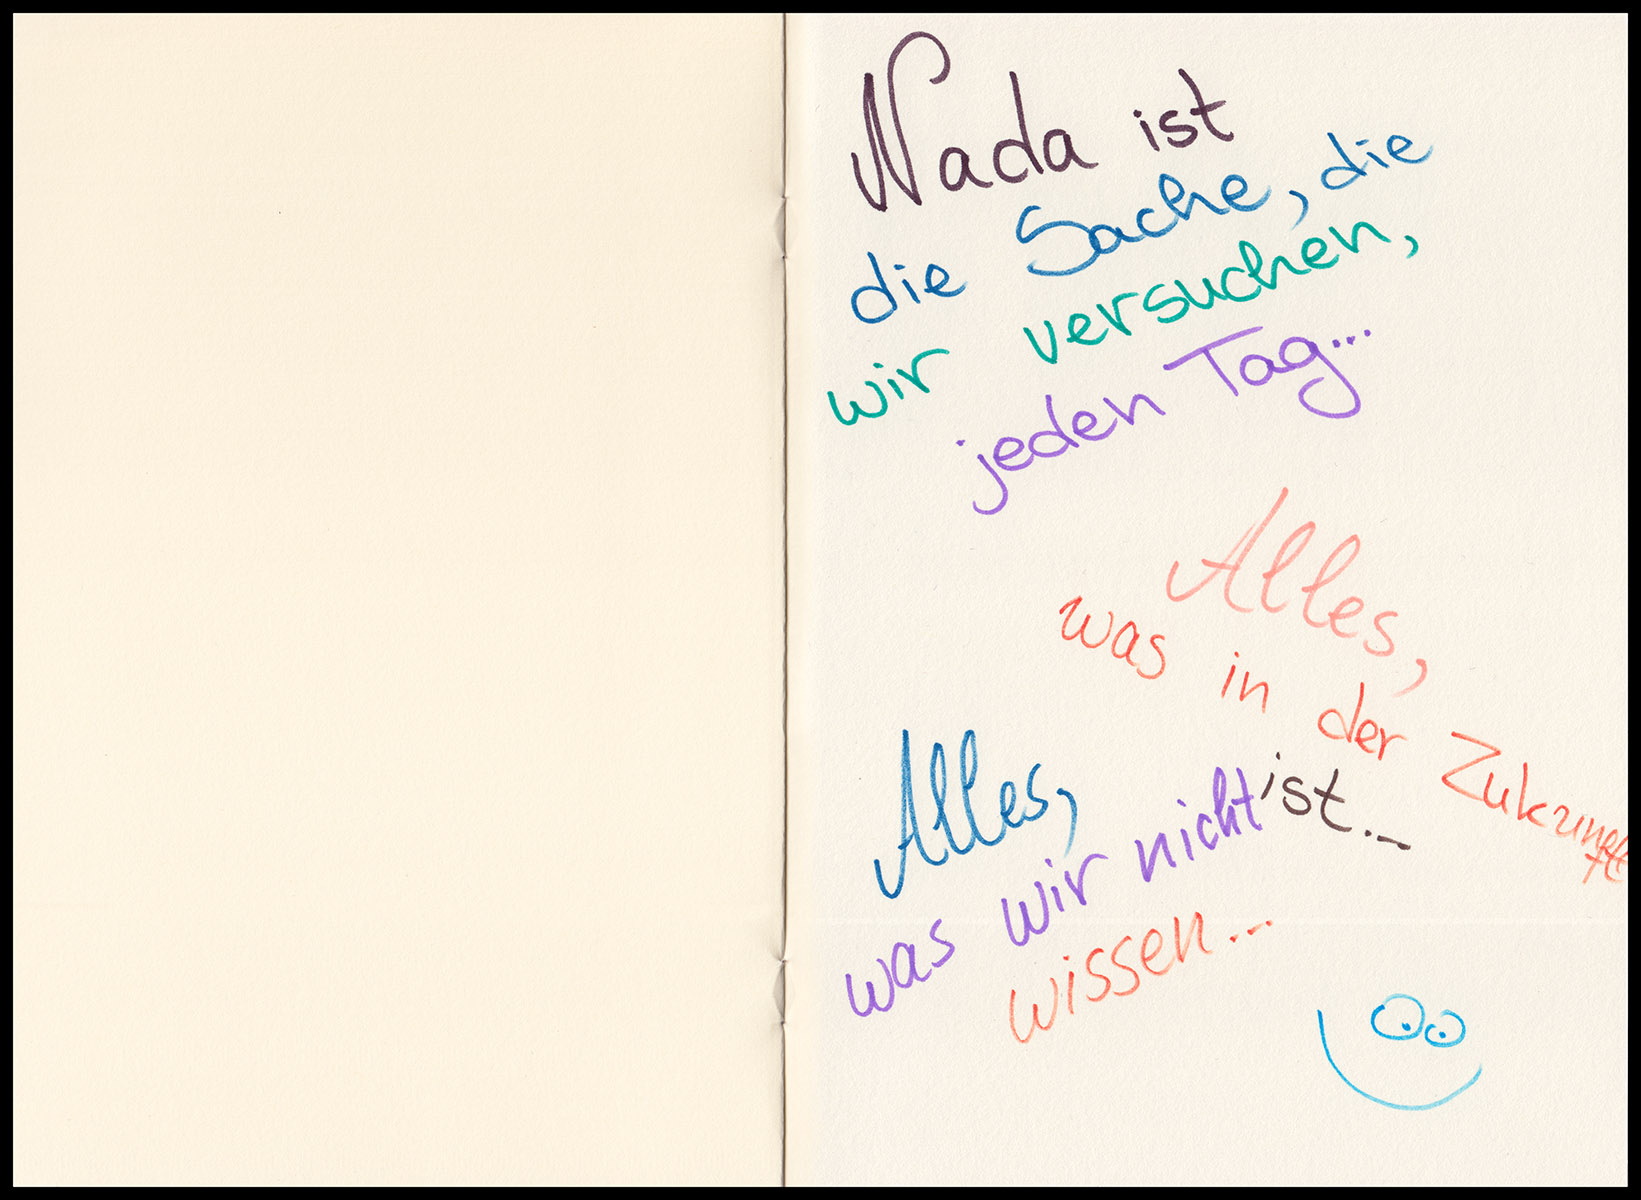 Nada ist
die Sache, die
wir versuchen,
jeden Tag...
Alles,
was in der Zukunft
ist...
Alles,
was wir nicht
wissen...